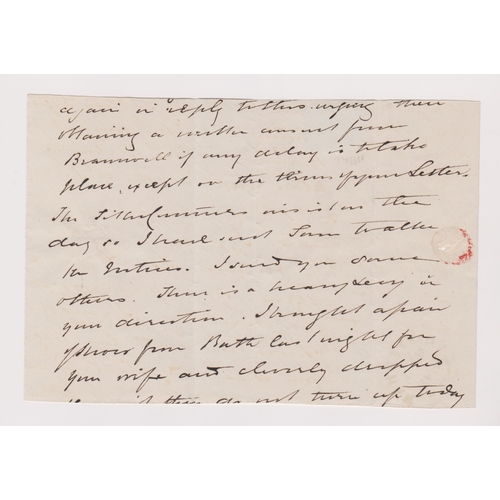 again in reply to this urging their
obtaining a written consent from
Bramwell if any delay is to take
place, except on the terms of your Letter.
The insist on the
day so I have sent Sam to alter
the Notices. I send you some
others. There is a heavy Levy in
your direction. I brought a pair
of shoes from Bath last night for
your wife and cleverly dropped
if they do not turn up today